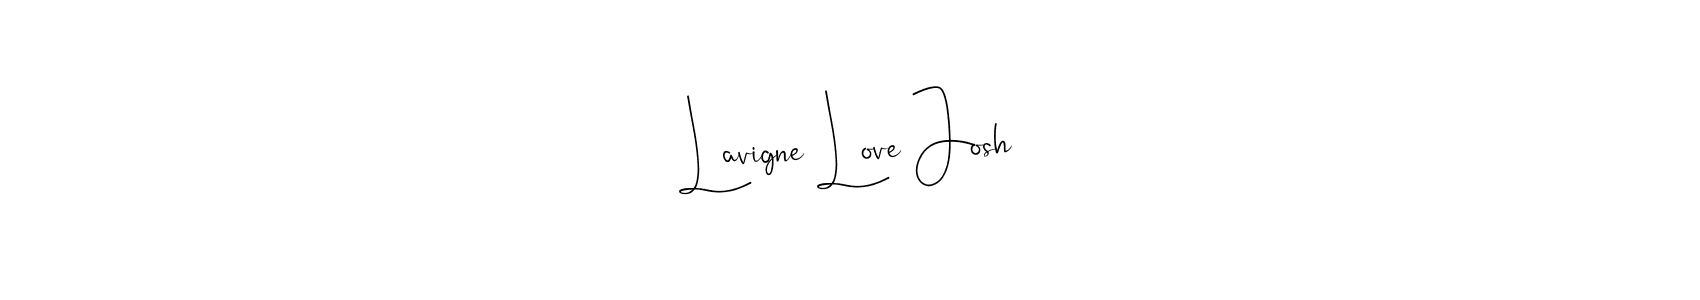 Lavigne Love Josh